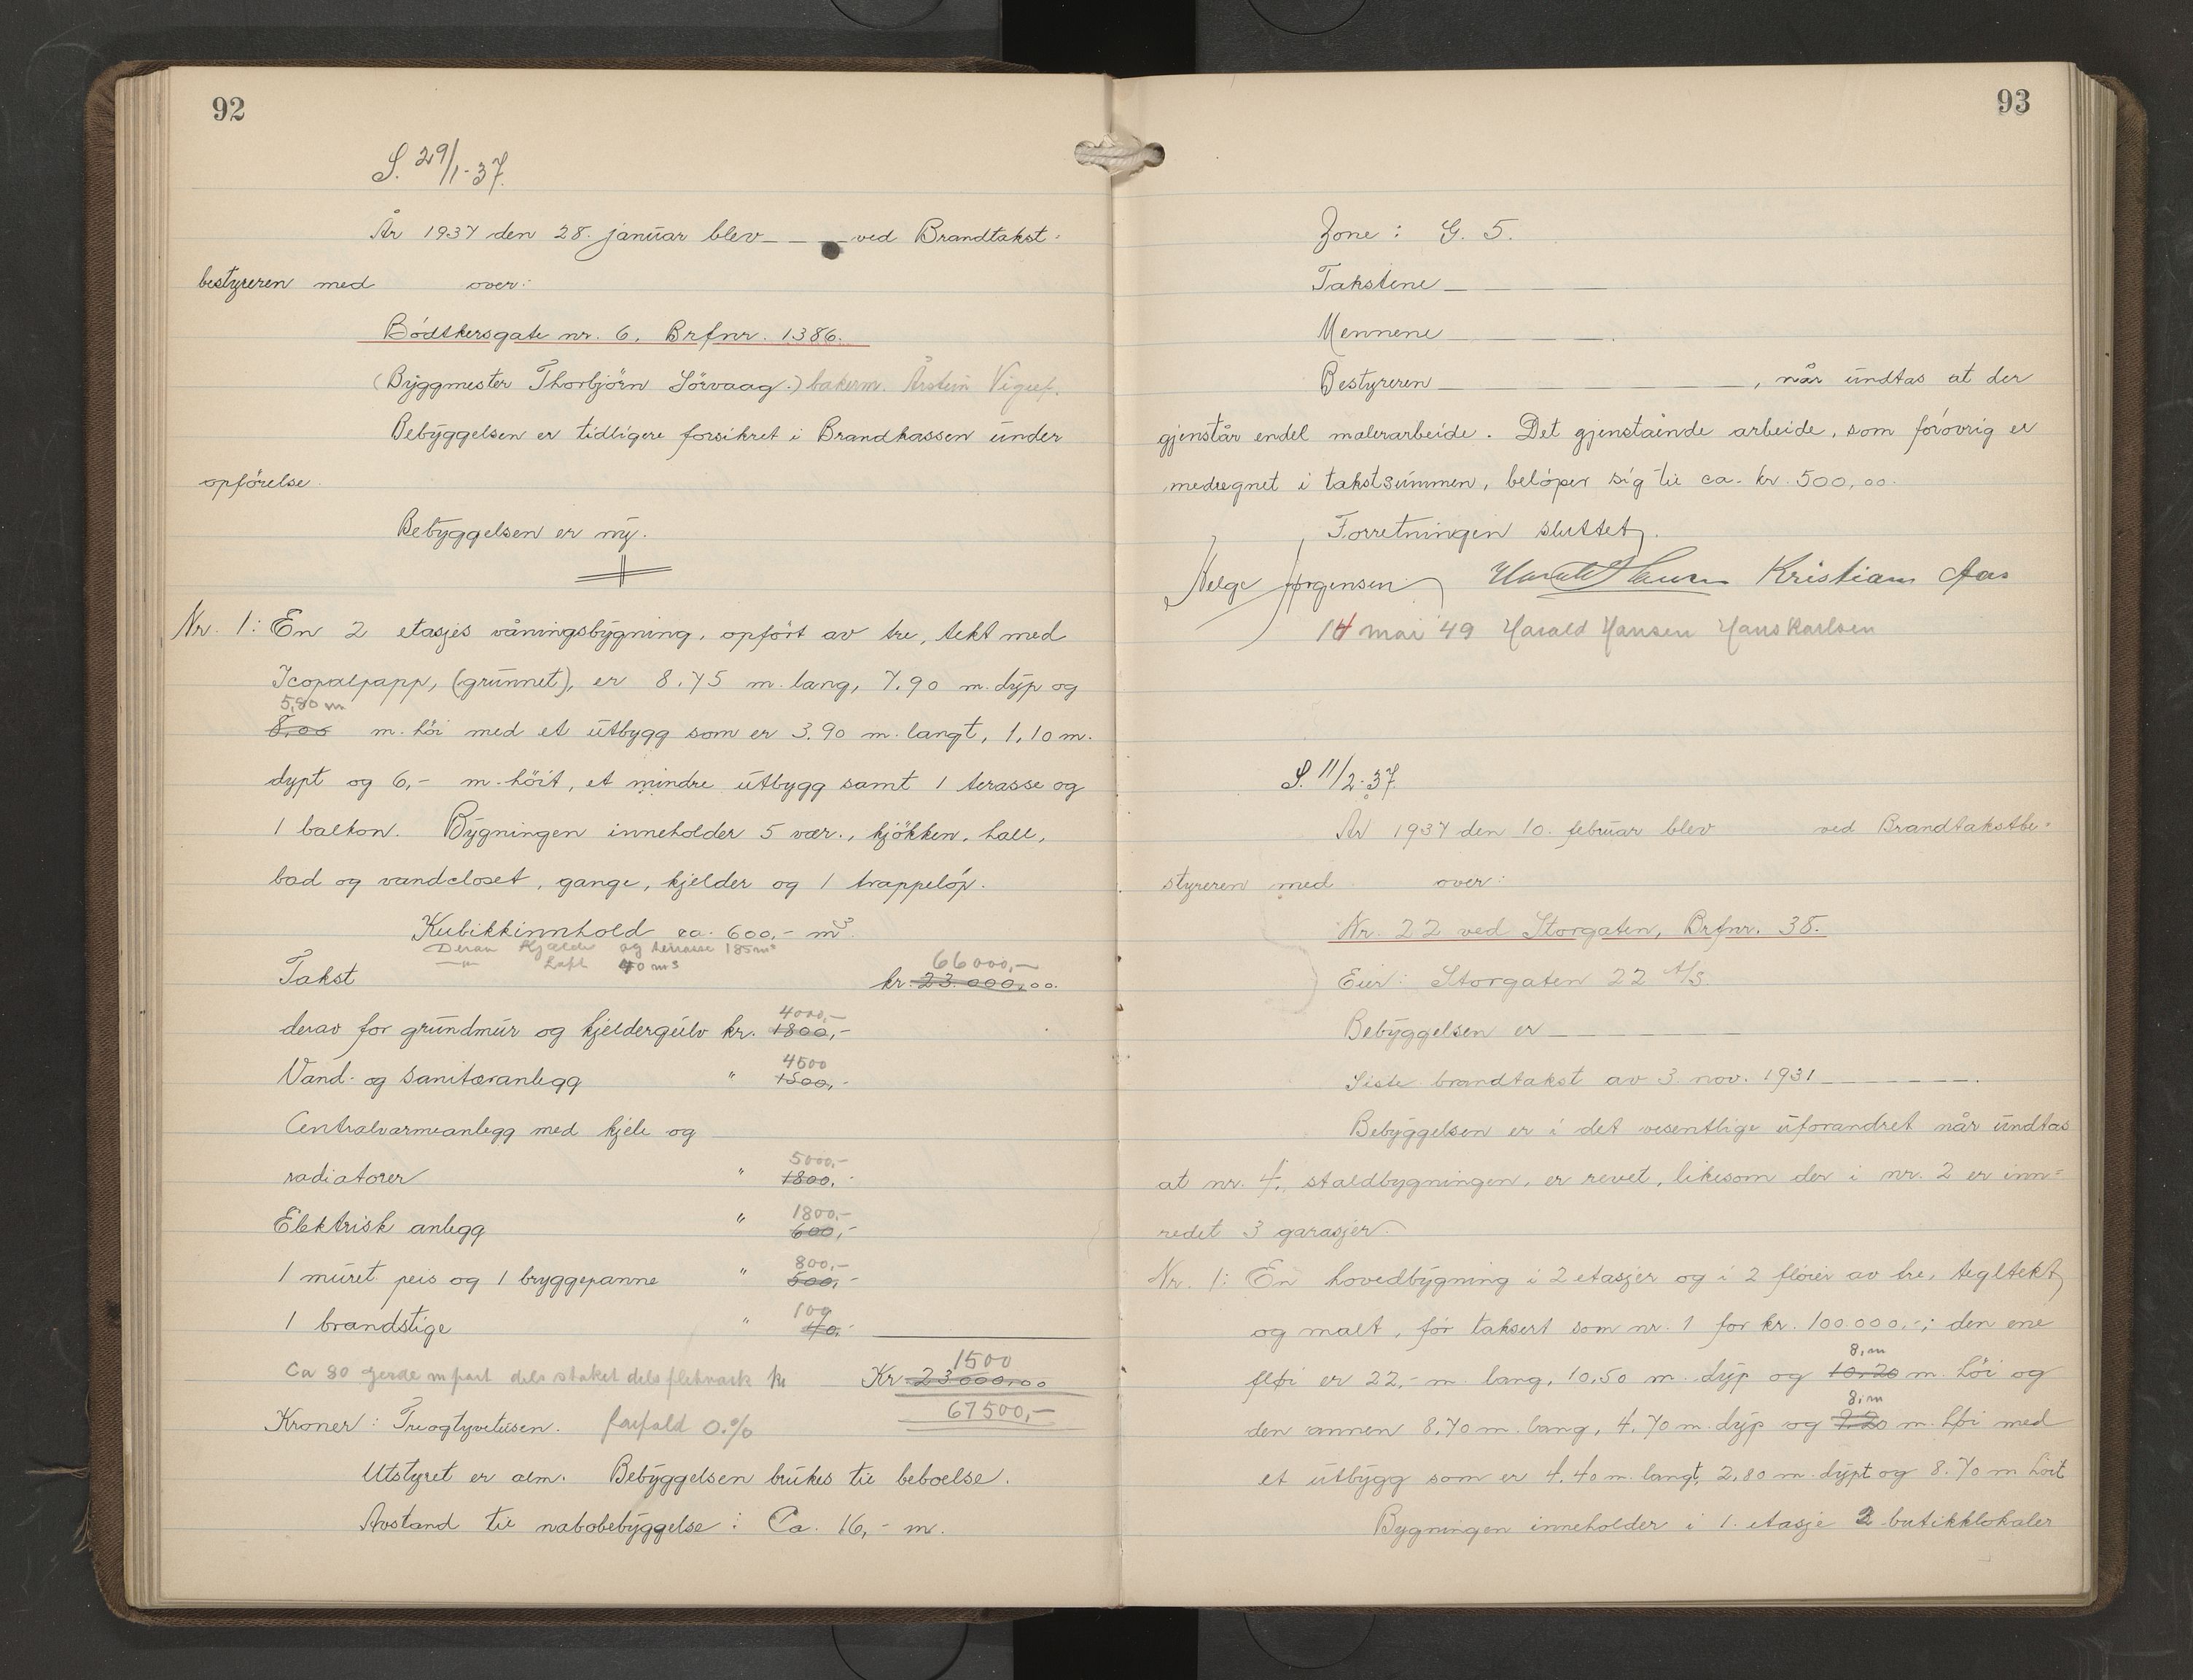 92
S. 29/1-37.
År 1937 den 28. januar blev_ _ _ ved Brandtakst=
bestyreren med over:
Bödtkersgate nr. 6, Brfnr. 1386.
(Byggmester Thorbjörn Sörvaag.) bakerm. Årstein
Bebyggelsen er tidligere forsikret i Brandkassen under
opförelse.
Bebyggelsen er ny.
Nr. 1: En 2 etasjes våningsbygning, opfört av tre, tekt med
Icopalpapp, (grunnet), er 8.75 m. lang, 7.90 m. dyp og
5,80 m
8,00 m. höi med et utbygg som er 3.90 m. langt, 1,10 m.
dypt og 6,- m. höit, et mindre utbygg samt 1 terasse og
1 balkon. Bygningen inneholder 5 vær., kjökken, hall,
bad og vandcloset, gange, kjelder og 1 trappelöp.
Kubikkinnhold ca. 600,- m³.
Derav Kjælder og terrasse 185 m³
—"— Loft 40 m³
66000,-
Takst kr. 23.000,00.
4000,-
derav for grundmur og kjeldergulv kr. 1800,-
4500
Vand- og sanitæranlegg " 1500,-
Centralvarmeanlegg med kjele og
5000,-
radiatorer " 1800,-
1800,-
Elektrisk anlegg " 600,-
800,-
1 muret peis og 1 bryggepanne " 500,-
100
1 brandstige " 40,-
1500
Ca 80 m gerde part dels staket dels fletverk kr Kr. 23000,00
67500,-
Kroner: Treogtyvetusen. forfald 0.%
Utstyret er alm. Bebyggelsen brukes til beboelse.
Avstand til nabobebyggelse: Ca. 16,- m.
93
Zone: G. 5.
Takstene_ _____
Mennene_ _____.
Bestyreren_ _____, når undtas at der
gjenstår endel malerarbeide. Det gjenstående arbeide, som forövrig er
medregnet i takstsummen, belöper sig til ca. kr. 500,00.
Forretningen sluttet.
Helge Jörgensen Harald Hansen Kristian Aas
14 mai '49 Harald Hansen Hans Karlsen
S. 11/2-37.
År 1937 den 10. februar blev ved Brandtakstbe=
styreren med over:
Nr. 22 ved Storgaten, Brfnr. 38.
Eier: Storgaten 22 A/S
Bebyggelsen er_ _____
Siste brandtakst av 3. nov. 1931_ _____.
Bebyggelsen er i det vesentlige uforandret når undtas
at nr. 4, staldbygningen, er revet, likesom der i nr. 2 er inn=
redet 3 garasjer.
Nr. 1: En hovedbygning i 2 etasjer og i 2 flöier av tre, tegltekt
og malt, för taksert som nr. 1 for kr. 100.000,-; den ene
8,m
flöi er 22,- m. lang, 10,50 m. dyp og 10.20 m. höi og
8,m
den annen 8.70 m. lang, 4.70 m. dyp og 9.20 m. höi med
et utbygg som er 4.40 m. langt, 2,80 m. dypt og 8.70 m höit
Bygningen inneholder i 1. etasje 2 butikklokaler